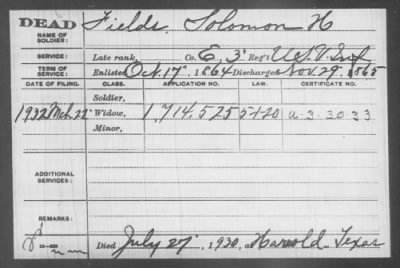 DEAD
NAME OF SOLDIER:
Fields, Solomon H
SERVICE:
Late rank, Co. E, 3 Reg't U.S.V. Inf
TERM OF SERVICE:
Enlisted Oct. 17", 1864 Discharged Nov. 29", 1865
DATE OF FILING. CLASS. APPLICATION NO. LAW. CERTIFICATE NO.
Soldier,
1932 Mch 22 Widow, 1,714,525 5-1-20 a-3-30-33
Minor,
ADDITIONAL SERVICES:
REMARKS:
Died July 27, 1930, at Harrold Texas